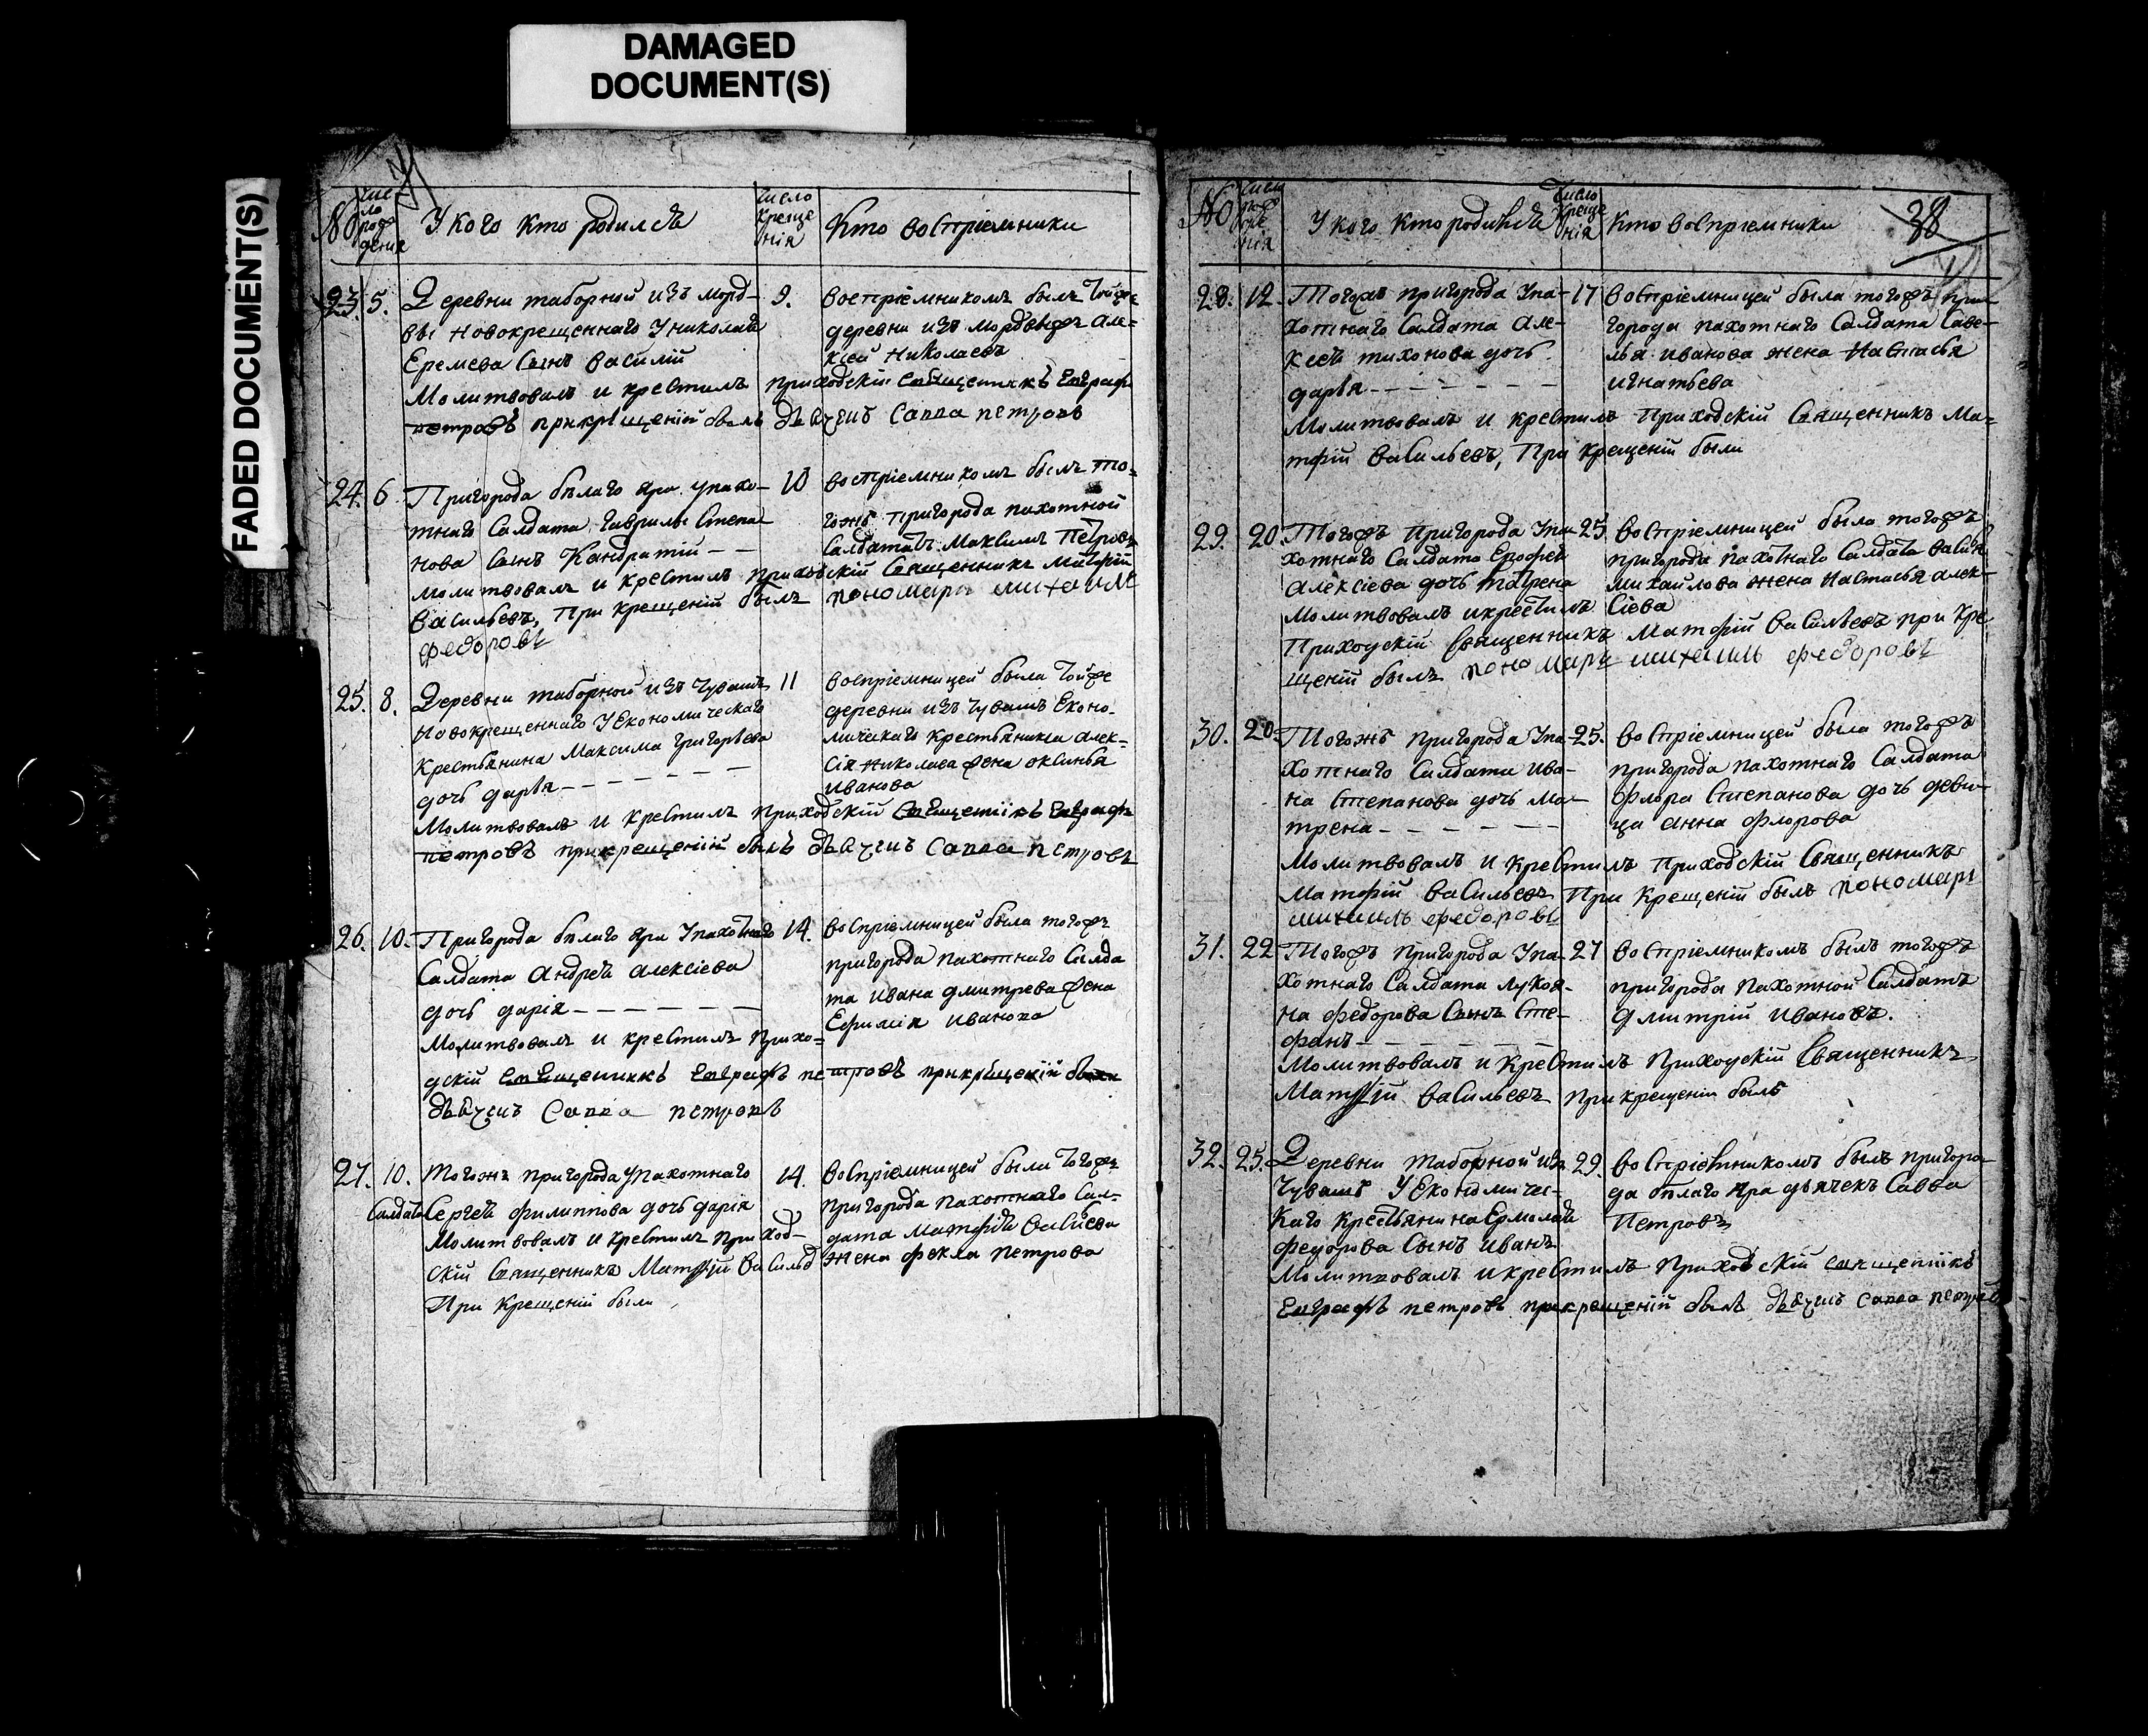 DAMAGED
DOCUMENT(S)
FADED DOCUMENT(S)
№
Число рождения
У кого кто родился
Число крещения
Кто восприемники
23. 5. Деревни таборной изъ морд-
вы новокрещеннаго У николая
Еремева сынъ василий
Молитвовалъ и крестилъ приходский священникъ Евграфъ
петровъ прикрещении былъ дьячекъ Савва петровъ
9. восприемникомъ былъ тойже
деревни изъ мордвы же але-
ксей николаевъ
24. 6. Пригорода белаго яра упахо-
тнаго Салдата гаврилы Степа-
нова сынъ Кандратий
молитвовалъ и крестилъ приходский священникъ матфий
васильевъ, При крещении былъ пономарь михаилъ
федоровъ
10 восприемникомъ былъ то-
гожъ пригорода пахотной
Салдатъ Максимъ Петровъ
25. 8. Деревни таборной изъ Чувашъ
Новокрещеннаго У Економическаго
Крестьянина Максима григорьева
дочь дарья
Молитвовалъ и крестилъ приходский священникъ Евграфъ
петровъ прикрещении былъ дьячекъ Савва петровъ
11 восприемницей была тойже
деревни изъ чувашъ Еконо-
мическаго крестьянина алек-
сия николаева жена оксинья
иванова
26. 10. Пригорода белаго яра Упахотнаго
Салдата андрея алексиева
дочь дария
Молитвовалъ и крестилъ прихо-
дский священникъ Евграфъ петровъ прикрещении былъ
дьячекъ Савва петровъ
14. восприемницей была тогожъ
пригорода пахотнаго Салда
та ивана дмитрева жена
Ефимия иванова
27. 10. тогожъ пригорода упахотнаго
Салдата Сергея филиппова дочь дария
Молитвовалъ и крестилъ приход-
ский священникъ Матфий васильевъ
При крещении были
14. восприемницей была тогожъ
пригорода пахотнаго Сал-
дата матфия
жена фекла петрова
№
Число рождения
У кого кто родился
Число крещения
Кто восприемники
38
28. 12. Тогожъ пригорода Упа-
хотнаго Салдата але-
ксея тихонова дочь
дарья
Молитвовалъ и крестилъ Приходский Священникъ Ма-
тфий васильевъ, При крещении были
17 восприемницей была тогожъ при-
города пахотнаго Салдата Саве-
лья иванова жена настасья
игнатьева
29. 20. Тогожъ Пригорода Упа-
хотнаго Салдата Ерофея
алексиева дочь матрена
молитвовалъ и крестилъ
Приходский Священникъ Матфий васильевъ при кре
щении былъ пономарь михаилъ федоровъ
25. восприемницей была тогожъ
пригорода пахотнаго Салдата васил
михайлова жена настасья алек-
сиева
30. 20. Тогожъ пригорода Упа-
хотнаго Салдата ива-
на Степанова дочь ма-
трена
Молитвовалъ и крестилъ Приходский Священникъ
Матфий васильевъ При крещении былъ пономарь
михаилъ федоровъ
25. восприемницей была тогожъ
пригорода пахотнаго Салдата
флора Степанова дочь деви-
ца анна флорова
31. 22 Тогожъ Пригорода Упа-
хотнаго Салдата лукоя-
на федорова сынъ Сте-
фанъ
Молитвовалъ и крестилъ Приходский Священникъ
Матфий васильевъ При крещении былъ
27 восприемникомъ былъ тогожъ
пригорода Пахотной Салдатъ
дмитрий ивановъ.
32. 25. Деревни таборной изъ
Чувашъ У Економичес-
каго крестьянина Ермолая
федорова сынъ иванъ
Молитвовалъ и крестилъ Приходский священникъ
Евграфъ петровъ прикрещении былъ дьячекъ Савва петровъ
29. восприемникомъ былъ пригоро
да белаго яра дьячекъ Савва
Петровъ